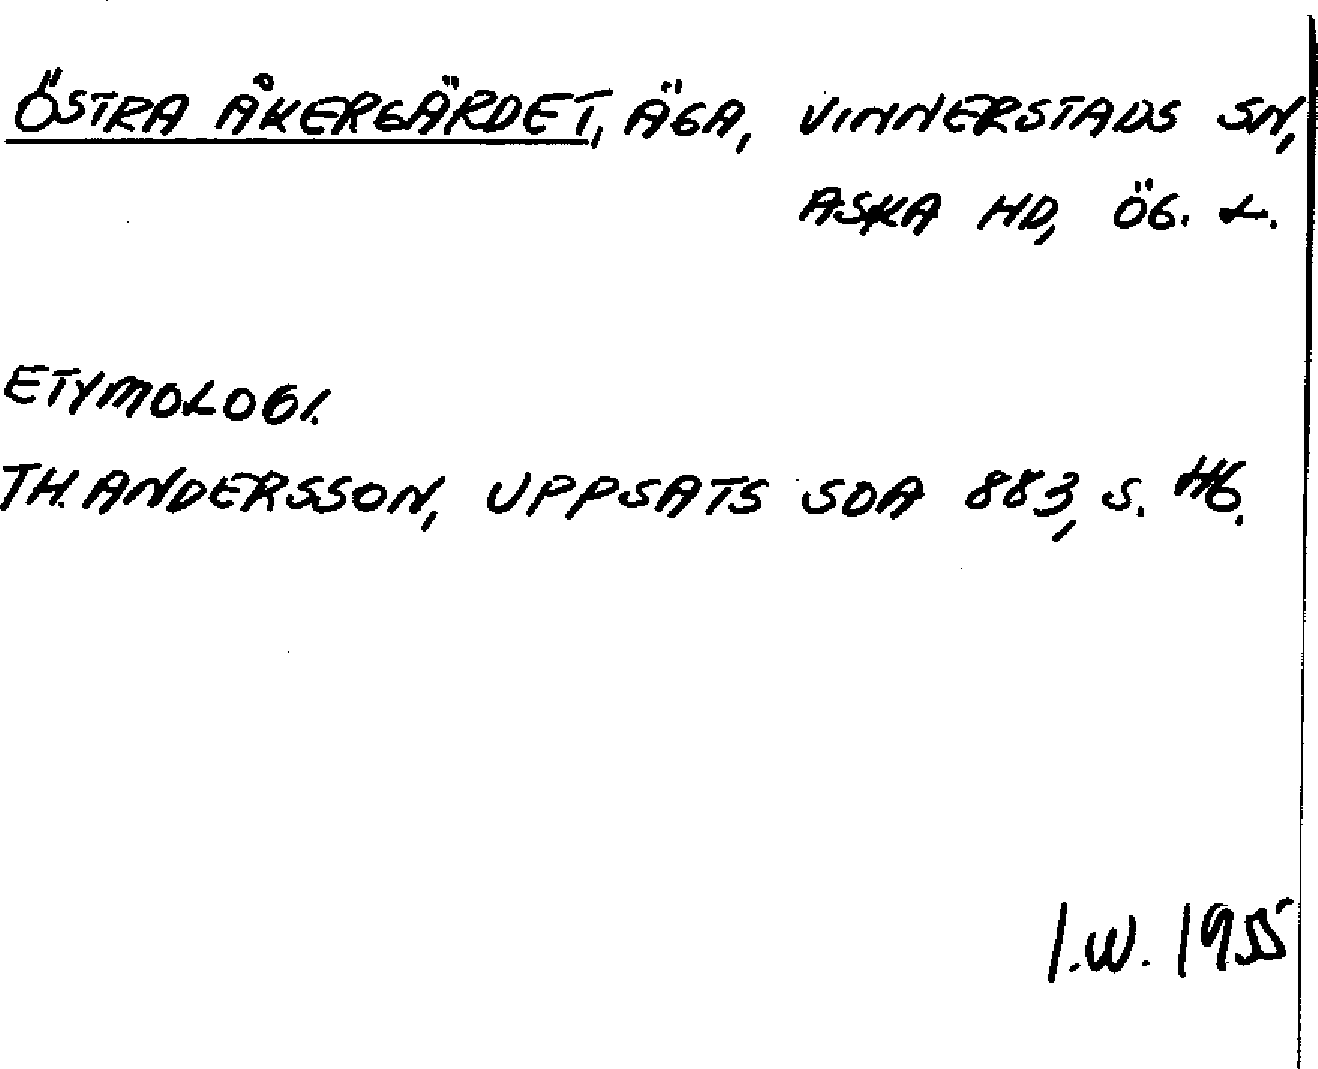 ÖSTRA ÅKERGÄRDET, ÄGA, VINNERSTADS SN,
ASKA HD, ÖG. L.
ETYMOLOGI.
TH. ANDERSSON, UPPSATS SOA 883, S. 46.
I.W. 1955